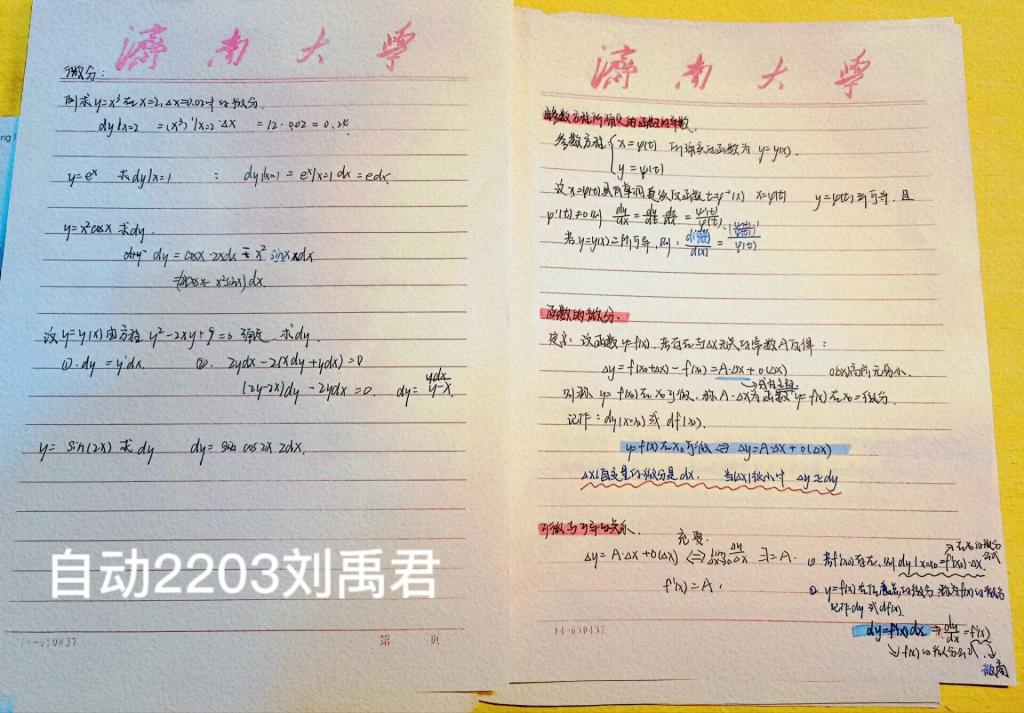 濟南大學
微分:
例求y=x³在x=2,Δx=0.02时的微分.
dy|x=2 =(x³)'|x=2·Δx =12·0.02=0.24.
y=eˣ 求dy|x=1 : dy|x=1=eˣ|x=1 dx=edx.
y=x²cosx 求dy.
dy=cosx·2xdx
设y=y(x)由方程y²-2xy+9=0 确定 求dy.
①.dy=y'dx. ②. 2ydx-2(xdy+ydx)=0
(2y-2x)dy-2ydx=0. dy=ydx/y-x.
y=sin(2x)求dy dy= cos2x 2dx.
自动2203刘禹君
14-650437 第 页
濟南大學
参数方程所确定的函数的导数.
参数方程{x=φ(t) 所确定的函数为y=y(x).
y=ψ(t)
设x=φ(t)具有单调连续反函数t=φ⁻¹(x) x=φ(t) y=ψ(t)可导.且
φ'(t)≠0则 dy/dx=dy/dt·dt/dx=ψ'(t)/φ'(t).
若y=y(x)二阶可导,则:
函数的微分.
定义:设函数y=f(x).若存在与Δx无关的常数A使得:
Δy=f(x₀+Δx)-f(x₀)=A·Δx+o(Δx)
线性主部.
则称y=f(x)在x₀可微,称A·Δx为函数y=f(x)在x₀微分.
记作:dy(x=x₀)或df(x₀).
y=f(x)在x₀可微⇔Δy=A·Δx+o(Δx)
Δx(自变量)的微分是dx. 当|Δx|很小时 Δy≈dy
可微与可导的关系
充要
Δy=A·Δx+o(Δx)⇔lim Δx→0 Δy/Δx ∃=A.
f'(x)=A.
① 若f'(x₀)存在,则dy|x=x₀=f'(x₀)·Δx.
② y=f(x)在任意点的微分,称为f(x)的微分
记作dy或df(x).
dy=f'(x)dx ⇒dy/dx=f'(x)
微商
14-650437